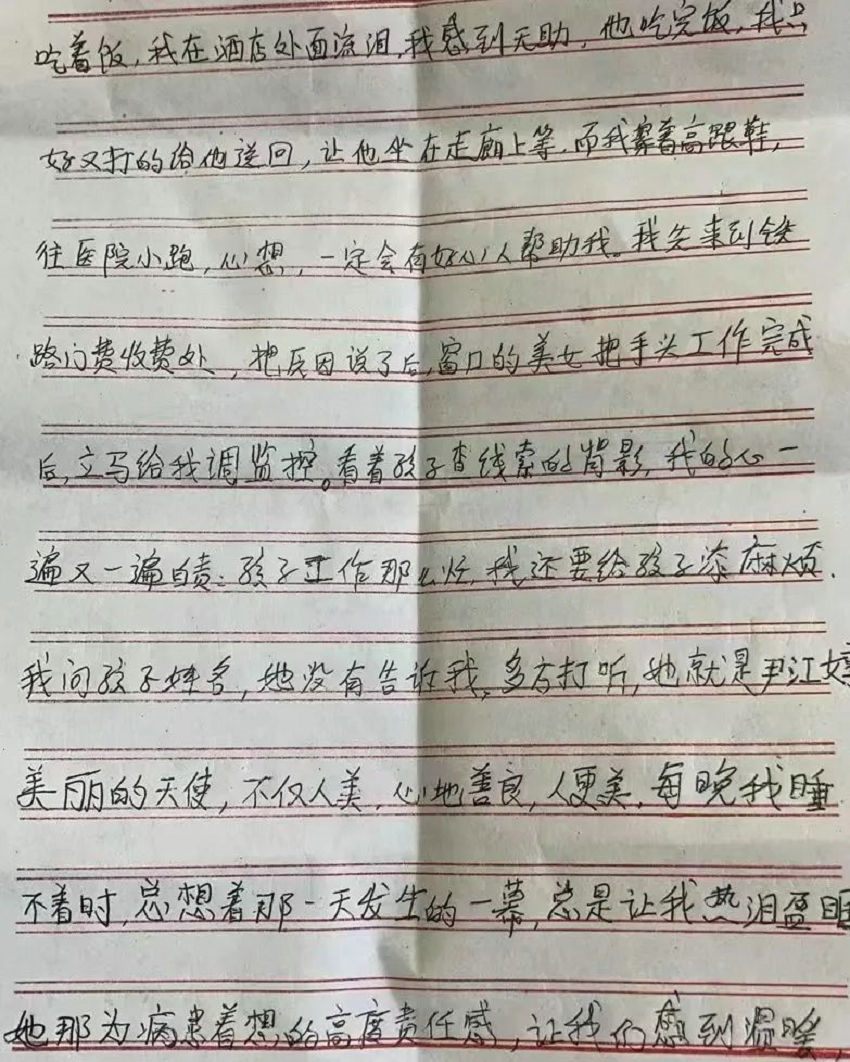 吃着饭,我在酒店外面流泪,我感到无助,他吃完饭,我只
好又打的给他送回,让他坐在走廊上等,而我穿着高跟鞋,
往医院小跑,心想,一定会有好心人帮助我。我先来到铁
路门费收费处,把反因说了后,窗口的美女把手头工作完成
后,立马给我调监控。看着孩子查线索的背影,我的心一
遍又一遍自责:孩子工作那么忙,我还要给孩子添麻烦.
我问孩子姓名,她没有告诉我,多方打听,她就是尹江婷
美丽的天使,不仅人美,心地善良,人更美,每晚我睡
不着时,总想着那一天发生的一幕,总是让我热泪盈眶
她那为病患着想的高度责任感,让我们感到温暖,